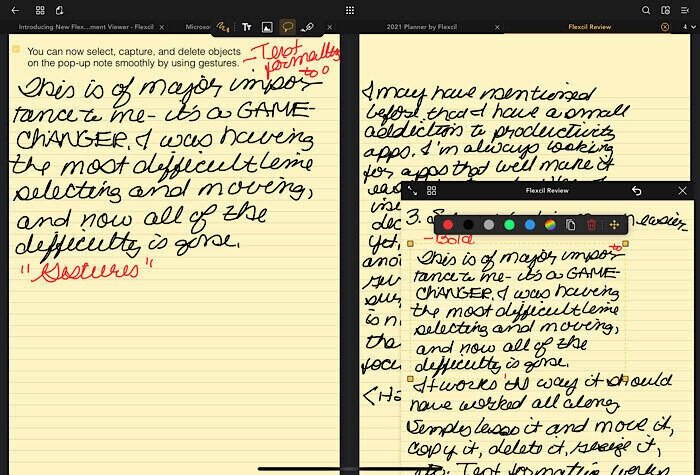 Introducing New Flex...ment Viewer - Flexcil
Microso
2021 Planner by Flexcil
Flexcil Review
4
You can now select, capture, and delete objects
on the pop-up note smoothly by using gestures.
- Text
formatting
too
This is of major impor
tance to me- it's a GAME-
CHANGER. I was having
the most difficult time
selecting and moving,
and now all of the
difficulty is gone.
"Gestures"
I may have mentioned
before that I have a small
addiction to productivity
apps. I'm always looking
for apps that will make it
yet,
is n
tha
focu
<Ha
Flexcil Review
3. S
easier
- Bold
to
This is of major impor
tance to me- it's a GAME-
CHANGER. I was having
the most difficult time
selecting and moving,
and now all of the
difficulty is gone.
It works the way it should
have worked all along
Simply lasso it and move it,
copy it, delete it, resize it,
etc. Text formatting works